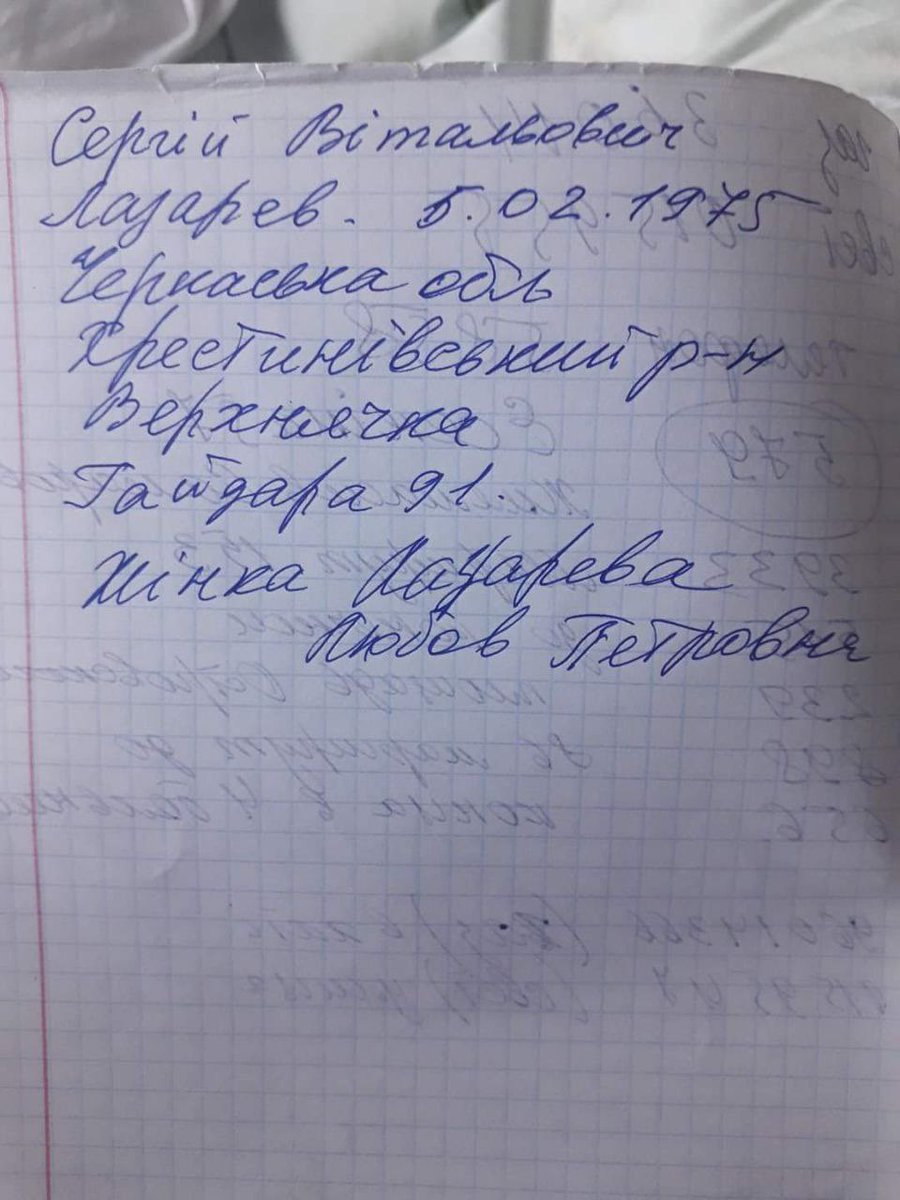 Сергій Вітальович
Лазарев. 5.02.1975
Черкаська обль
Хрестинівський р-н
Верхнячка
Гайдара 91.
Жінка Лазарева
Любов Петровна